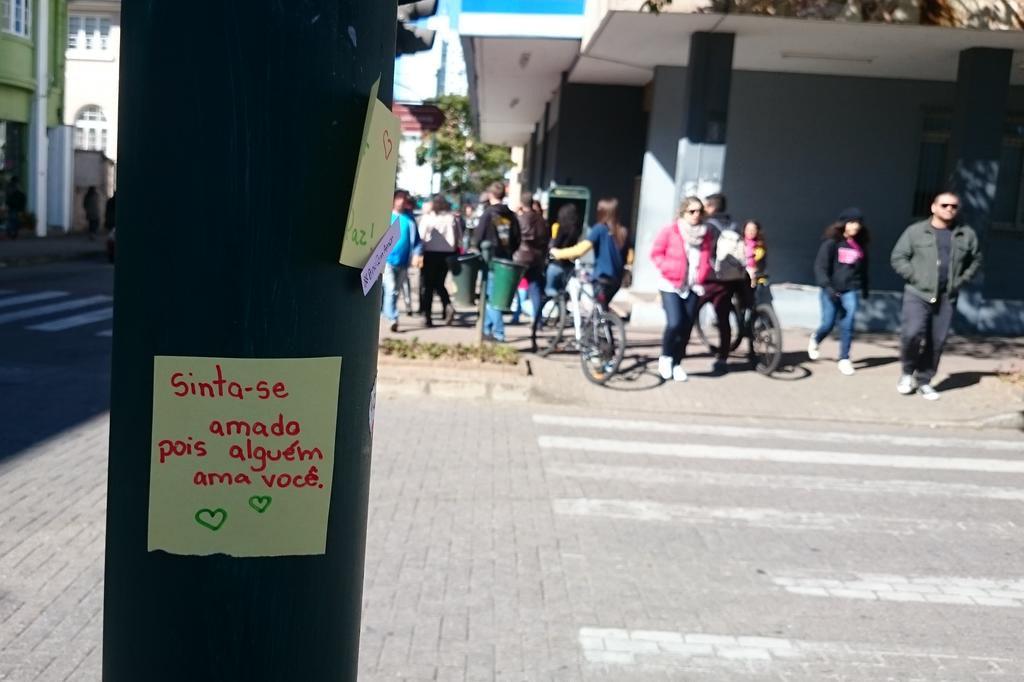 az!
Sinta-se
amado
pois alguém
ama você.